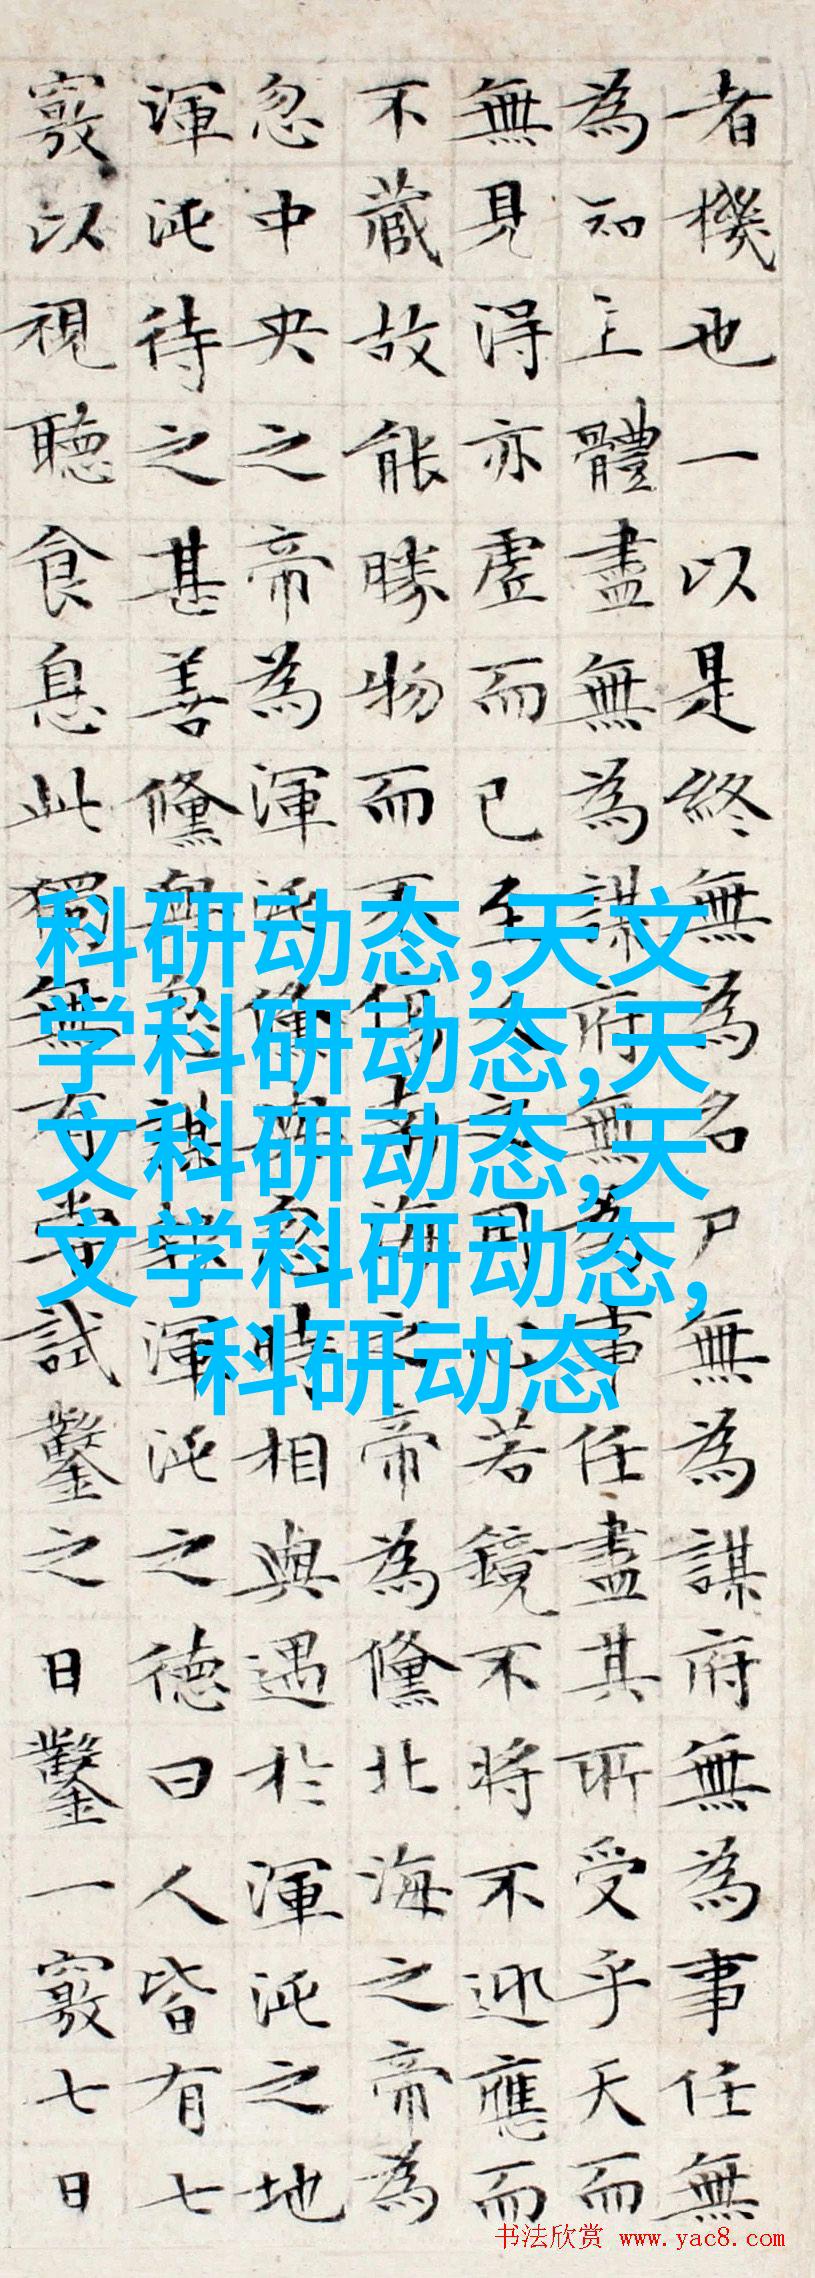 者機也一以是終無為名尸無為謀府無為事任無
為知主體盡無為謀府無為事任盡其所受乎天而
無見得亦虛而已至人之用心若鏡不將不迎應而
不藏故能勝物而不傷南海之帝為儵北海之帝為
忽中央之帝為渾沌儵與忽時相與遇於渾沌之地
渾沌待之甚善儵與忽謀報渾沌之德曰人皆有七
竅以視聽食息此獨無有嘗試鑿之日鑿一竅七日
科研动态,天文
学科研动态,天
文科研动态,天
文学科研动态,
科研动态
书法欣赏 www.yac8.com